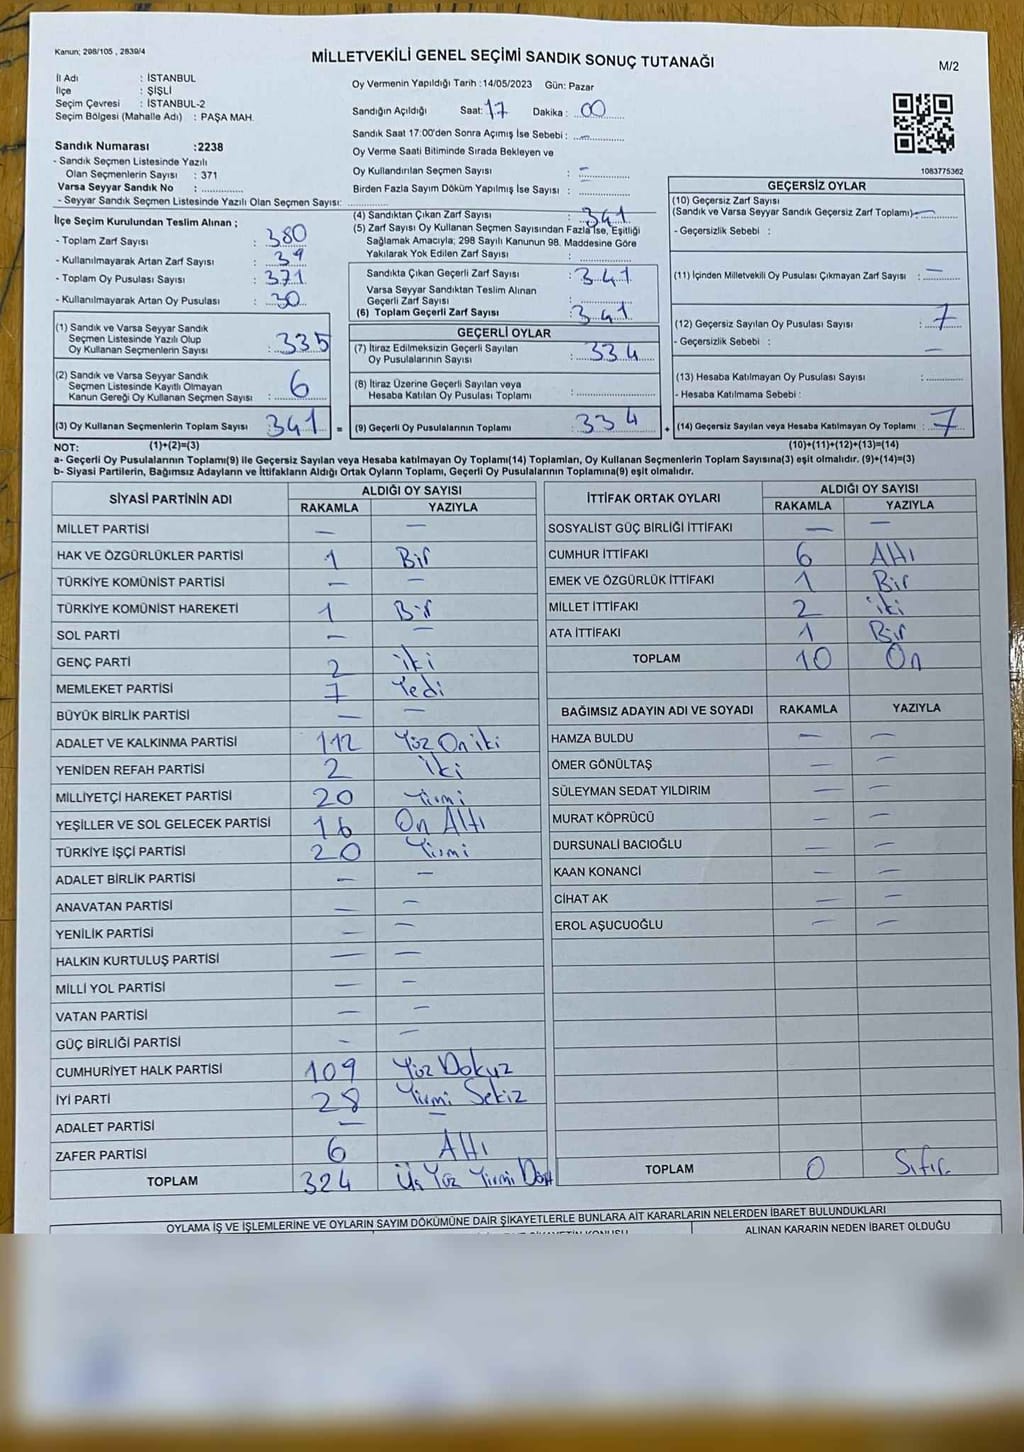 Kanun; 298/105 , 2839/4
MİLLETVEKİLİ GENEL SEÇİMİ SANDIK SONUÇ TUTANAĞI
M/2
İl Adı : İSTANBUL
İlçe : ŞİŞLİ
Seçim Çevresi : İSTANBUL-2
Seçim Bölgesi (Mahalle Adı) : PAŞA MAH.
Oy Vermenin Yapıldığı Tarih :14/05/2023 Gün: Pazar
Sandığın Açıldığı Saat: 17 Dakika : 00
Sandık Saat 17:00'den Sonra Açımış İse Sebebi : —
Oy Verme Saati Bitiminde Sırada Bekleyen ve
Oy Kullandırılan Seçmen Sayısı : —
Birden Fazla Sayım Döküm Yapılmış İse Sayısı :
1083775362
Sandık Numarası :2238
- Sandık Seçmen Listesinde Yazılı
Olan Seçmenlerin Sayısı : 371
Varsa Seyyar Sandık No :
- Seyyar Sandık Seçmen Listesinde Yazılı Olan Seçmen Sayısı:
İlçe Seçim Kurulundan Teslim Alınan ;
- Toplam Zarf Sayısı : 380
- Kullanılmayarak Artan Zarf Sayısı : 39
- Toplam Oy Pusulası Sayısı : 371
- Kullanılmayarak Artan Oy Pusulası : 30
(1) Sandık ve Varsa Seyyar Sandık
Seçmen Listesinde Yazılı Olup
Oy Kullanan Seçmenlerin Sayısı : 335
(2) Sandık ve Varsa Seyyar Sandık
Seçmen Listesinde Kayıtlı Olmayan
Kanun Gereği Oy Kullanan Seçmen Sayısı : 6
(3) Oy Kullanan Seçmenlerin Toplam Sayısı 341 =
(4) Sandıktan Çıkan Zarf Sayısı : 341
(5) Zarf Sayısı Oy Kullanan Seçmen Sayısından Fazla İse, Eşitliği
Sağlamak Amacıyla; 298 Sayılı Kanunun 98. Maddesine Göre
Yakılarak Yok Edilen Zarf Sayısı :
Sandıkta Çıkan Geçerli Zarf Sayısı : 341
Varsa Seyyar Sandıktan Teslim Alınan
Geçerli Zarf Sayısı :
(6) Toplam Geçerli Zarf Sayısı : 341
GEÇERLİ OYLAR
(7) İtiraz Edilmeksizin Geçerli Sayılan
Oy Pusulalarının Sayısı : 334
(8) İtiraz Üzerine Geçerli Sayılan veya
Hesaba Katılan Oy Pusulası Toplamı :
(9) Geçerli Oy Pusulalarının Toplamı : 334 +
GEÇERSİZ OYLAR
(10) Geçersiz Zarf Sayısı
(Sandık ve Varsa Seyyar Sandık Geçersiz Zarf Toplamı) —
- Geçersizlik Sebebi :
(11) İçinden Milletvekili Oy Pusulası Çıkmayan Zarf Sayısı : —
(12) Geçersiz Sayılan Oy Pusulası Sayısı : 7
- Geçersizlik Sebebi : —
(13) Hesaba Katılmayan Oy Pusulası Sayısı :
- Hesaba Katılmama Sebebi :
(14) Geçersiz Sayılan veya Hesaba Katılmayan Oy Toplamı : 7
NOT: (1)+(2)=(3) (10)+(11)+(12)+(13)=(14)
a- Geçerli Oy Pusulalarının Toplamı(9) ile Geçersiz Sayılan veya Hesaba katılmayan Oy Toplamı(14) Toplamları, Oy Kullanan Seçmenlerin Toplam Sayısına(3) eşit olmalıdır. (9)+(14)=(3)
b- Siyasi Partilerin, Bağımsız Adayların ve İttifakların Aldığı Ortak Oyların Toplamı, Geçerli Oy Pusulalarının Toplamına(9) eşit olmalıdır.
SİYASİ PARTİNİN ADI ALDIĞI OY SAYISI
RAKAMLA YAZIYLA
MİLLET PARTİSİ — —
HAK VE ÖZGÜRLÜKLER PARTİSİ 1 Bir
TÜRKİYE KOMÜNİST PARTİSİ — —
TÜRKİYE KOMÜNİST HAREKETİ 1 Bir
SOL PARTİ — —
GENÇ PARTİ 2 iki
MEMLEKET PARTİSİ 7 Yedi
BÜYÜK BİRLİK PARTİSİ — —
ADALET VE KALKINMA PARTİSİ 112 Yüz On iki
YENİDEN REFAH PARTİSİ 2 iki
MİLLİYETÇİ HAREKET PARTİSİ 20 Yirmi
YEŞİLLER VE SOL GELECEK PARTİSİ 16 On Altı
TÜRKİYE İŞÇİ PARTİSİ 20 Yirmi
ADALET BİRLİK PARTİSİ — —
ANAVATAN PARTİSİ — —
YENİLİK PARTİSİ — —
HALKIN KURTULUŞ PARTİSİ — —
MİLLİ YOL PARTİSİ — —
VATAN PARTİSİ — —
GÜÇ BİRLİĞİ PARTİSİ — —
CUMHURİYET HALK PARTİSİ 109 Yüz Dokuz
İYİ PARTİ 28 Yirmi Sekiz
ADALET PARTİSİ — —
ZAFER PARTİSİ 6 Altı
TOPLAM 324 Üç Yüz Yirmi Dört
İTTİFAK ORTAK OYLARI ALDIĞI OY SAYISI
RAKAMLA YAZIYLA
SOSYALİST GÜÇ BİRLİĞİ İTTİFAKI — —
CUMHUR İTTİFAKI 6 Altı
EMEK VE ÖZGÜRLÜK İTTİFAKI 1 Bir
MİLLET İTTİFAKI 2 iki
ATA İTTİFAKI 1 Bir
TOPLAM 10 On
BAĞIMSIZ ADAYIN ADI VE SOYADI RAKAMLA YAZIYLA
HAMZA BULDU — —
ÖMER GÖNÜLTAŞ — —
SÜLEYMAN SEDAT YILDIRIM — —
MURAT KÖPRÜCÜ — —
DURSUNALİ BACIOĞLU — —
KAAN KONANCİ — —
CİHAT AK — —
EROL AŞUCUOĞLU — —
TOPLAM 0 Sıfır
OYLAMA İŞ VE İŞLEMLERİNE VE OYLARIN SAYIM DÖKÜMÜNE DAİR ŞİKAYETLERLE BUNLARA AİT KARARLARIN NELERDEN İBARET BULUNDUKLARI
ALINAN KARARIN NEDEN İBARET OLDUĞU